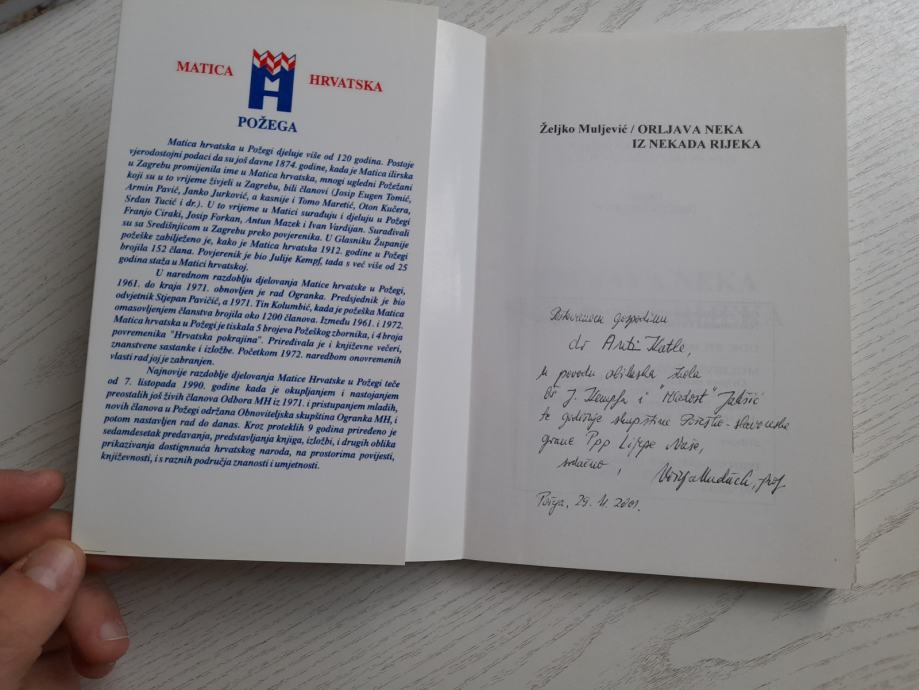 MATICA HRVATSKA
POŽEGA
Matica hrvatska u Požegi djeluje više od 120 godina. Postoje
vjerodostojni podaci da su još davne 1874. godine, kada je Matica ilirska
u Zagrebu promijenila ime u Matica hrvatska, mnogi ugledni Požežani
koji su u to vrijeme živjeli u Zagrebu, bili članovi (Josip Eugen Tomić,
Armin Pavić, Janko Jurković, a kasnije i Tomo Maretić, Oton Kučera,
Srđan Tucić i dr.). U to vrijeme u Matici surađuju i djeluju u Požegi
Franjo Ciraki, Josip Forkan, Antun Mazek i Ivan Vardijan. Surađivali
su sa Središnjicom u Zagrebu preko povjerenika. U Glasniku Županije
požeške zabilježeno je, kako je Matica hrvatska 1912. godine u Požegi
brojila 152 člana. Povjerenik je bio Julije Kempf, tada s već više od 25
godina staža u Matici hrvatskoj.
U narednom razdoblju djelovanja Matice hrvatske u Požegi,
1961. do kraja 1971. obnovljen je rad Ogranka. Predsjednik je bio
odvjetnik Stjepan Pavičić, a 1971. Tin Kolumbić, kada je požeška Matica
omasovljenjem članstva brojila oko 1200 članova. Između 1961. i 1972.
Matica hrvatska u Požegi je tiskala 5 brojeva Požeškog zbornika, i 4 broja
povremenika "Hrvatska pokrajina". Priređivala je i književne večeri,
znanstvene sastanke i izložbe. Početkom 1972. naredbom onovremenih
vlasti rad joj je zabranjen.
Najnovije razdoblje djelovanja Matice Hrvatske u Požegi teče
od 7. listopada 1990. godine kada je okupljanjem i nastojanjem
preostalih još živih članova Odbora MH iz 1971. i pristupanjem mladih,
novih članova u Požegi održana Obnoviteljska skupština Ogranka MH, i
potom nastavljen rad do danas. Kroz proteklih 9 godina priređeno je
sedamdesetak predavanja, predstavljanja knjiga, izložbi, i drugih oblika
prikazivanja dostignnuća hrvatskog naroda, na prostorima povijesti,
književnosti, i s raznih područja znanosti i umjetnosti.
Željko Muljević / ORLJAVA NEKA
IZ NEKADA RIJEKA
Poštovanom gospodinu
dr Anti
u povodu obilaska
dr J. Kempfa i "Mladost" Jakšić
te godišnje skupštine Požeško-slavonske
grane Lijepe Naše,
srdačno, prof
29. 2001.